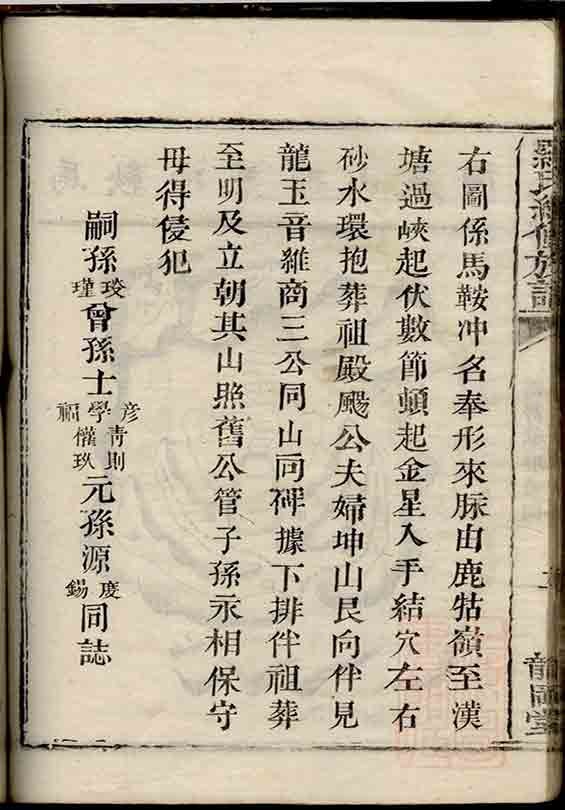 羅氏續修族譜
右圖係馬鞍冲名奉形來脉由鹿牯嶺至漢
塘過峽起伏數節頓起金星入手結穴左右
砂水環抱葬祖殿颺公夫婦坤山艮向伴見
龍玉音維商三公同山同
據下排伴祖葬
至明及立朝其山照舊公管子孫永相保守
毋得侵犯
嗣孫琰瑾曾孫士彥學福青權則玖元孫源慶錫同誌